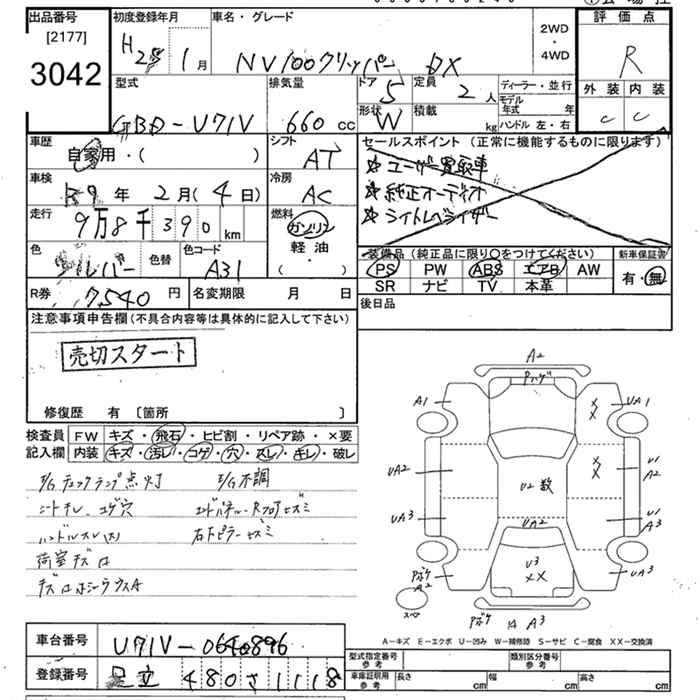 出品番号 初度登録年月 車名・グレード 評価点
[2177] H25 1月 NV100クリッパー DX 2WD・4WD R
3042 型式 排気量 ドア 定員 ディーラー・並行 外装 内装
GBD-U71V 660cc 5 2人 モデル年式 年 C C
形状 W 積載 kg ハンドル 左・右
車歴 シフト セールスポイント (正常に機能するものに限ります)
自家用・( ) AT ☆ユーザー買取車
車検 冷房 ☆純正オーディオ
R9年2月(4日) AC ☆ライトレベライザー
走行 燃料
9万8千390km ガソリン
軽油
・( )
色 色替 色コード 装備品 (純正品に限り○をつけてください) 新車保証書
シルバー A31 PS PW ABS エアB AW 有・無
SR ナビ TV 本革
R券 7,540円 名変期限 月 日 後日品
注意事項申告欄 (不具合内容等は具体的に記入して下さい)
売切スタート
修復歴 有 〔箇所 〕
検査員 FW キズ・飛石・ヒビ割・リペア跡・×要
記入欄 内装 キズ・汚レ・コゲ・穴・スレ・キレ・破レ
E/Gチェックランプ点灯 E/G不調
シートキレ、コゲ穴 エンドパネル・Rフロアサビミ
ハンドルスレ(大) 右下ピラーサビミ
荷室キズ
A2
A1 UA1
××
UA2 U2 数 ×× U1 A2
UA3 UA2 U1 A3
U3
××
A2 UA3
スペア A3
A-キズ E-エクボ U-凹み W-補修跡 S-サビ C-腐食 XX-交換済
車台番号 U71V-0640896
登録番号 足立 480 さ 1118
型式指定番号 参考 類別区分番号 参考
車庫証明用 参考 長さ cm 幅 cm 高さ cm